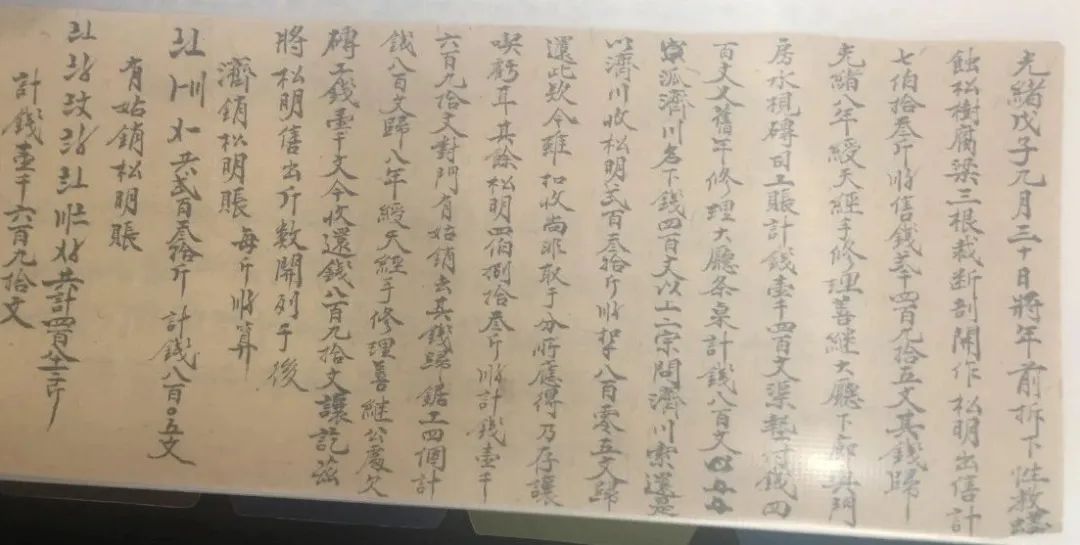 光緒戊子九月三十日將年前拆下性敦
蝕松樹腐梁三根裁断剖開作松明出售計
七伯拾叁斤 售錢 四百九拾五文其錢歸
光緒八年經天經手修理善繼大廳下廊與門
房水視磚司工賬計錢壹千四百文渠墊付錢四
百文又舊年修理大廳各桌計錢八百文
派濟川名下錢四百文以上二宗問濟川索還
以濟川收松明弍百叁拾斤 扣 八百零五文歸
還此欵今雖扣收尚非取于分所應得乃存讓
喫虧耳其餘松明四伯捌拾叁斤 計錢壹千
六百九拾文對門有姑銷去其錢歸鋸工四個計
錢八百文歸八年經天經手修理善繼公處欠
磚工錢 千文今收還錢八百九拾文讓訖茲
將松明售出斤數開列于後
濟銷松明賬 每斤 算
共弍百叁拾斤 計錢八百〇五文
有姑銷松明賬
共計四百 斤
計錢壹千六百九拾文